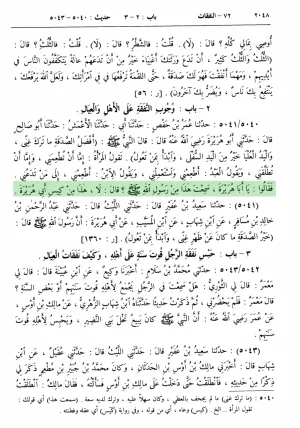 ٢٠٤٨ ٧٢ - النفقات باب / ٢ - ٣ حديث : ٥٠٤٠ - ٥٠٤٣
أوصي بمالي كله؟ قال: (لا). قلت: فالشطر؟ قال: (لا). قلت: فالثلث؟ قال: (الثلث،
والثلث كثير، أن تدع ورثتك أغنياء خير من أن تدعهم عالة يتكففون الناس في
أيديهم، ومهما أنفقت فهو لك صدقة، حتى اللقمة ترفعها في في امرأتك، ولعل الله يرفعك،
ينتفع بك ناس، ويضر بك آخرون). [ر: ٥٦]
٢ - باب : وجوب النفقة على الأهل والعيال.
٥٠٤١/٥٠٤٠ : حدثنا عمر بن حفص: حدثنا أبي: حدثنا الأعمش: حدثنا أبو صالح
قال: حدثني أبو هريرة رضي الله عنه قال: قال النبي ﷺ: (أفضل الصدقة ما ترك غنى،
واليد العليا خير من اليد السفلى، وابدأ بمن تعول). تقول المرأة: إما أن تطعمني، وإما أن
تطلقني، ويقول العبد: أطعمني واستعملني، ويقول الابن: أطعمني، إلى من تدعني.
فقالوا: يا أبا هريرة، سمعت هذا من رسول الله ﷺ؟ قال: لا، هذا من كيس أبي هريرة.
(٥٠٤١) : حدثنا سعيد بن عفير قال: حدثني الليث قال: حدثني عبد الرحمن بن
خالد بن مسافر، عن ابن شهاب، عن ابن المسيب، عن أبي هريرة: أن رسول الله ﷺ قال:
(خير الصدقة ما كان عن ظهر غنى، وابدأ بمن تعول). [ر: ١٣٦٠]
٣ - باب : حبس نفقة الرجل قوت سنة على أهله، وكيف نفقات العيال.
٥٠٤٣/٥٠٤٢ : حدثني محمد بن سلام: أخبرنا وكيع، عن ابن عيينة قال: قال لي
معمر: قال لي الثوري: هل سمعت في الرجل يجمع لأهله قوت سنتهم أو بعض السنة؟
قال معمر: فلم يحضرني، ثم ذكرت حديثا حدثناه ابن شهاب الزهري، عن مالك بن أوس،
عن عمر رضي الله عنه: أن النبي ﷺ كان يبيع نخل بني النضير، ويحبس لأهله قوت
سنتهم.
(٥٠٤٣) : حدثنا سعيد بن عفير قال: حدثني الليث قال: حدثني عقيل، عن ابن
شهاب قال: أخبرني مالك بن أوس بن الحدثان، وكان محمد بن جبير بن مطعم ذكر لي
ذكرا من حديثه، فانطلقت حتى دخلت على مالك بن أوس فسألته، فقال مالك: انطلقت